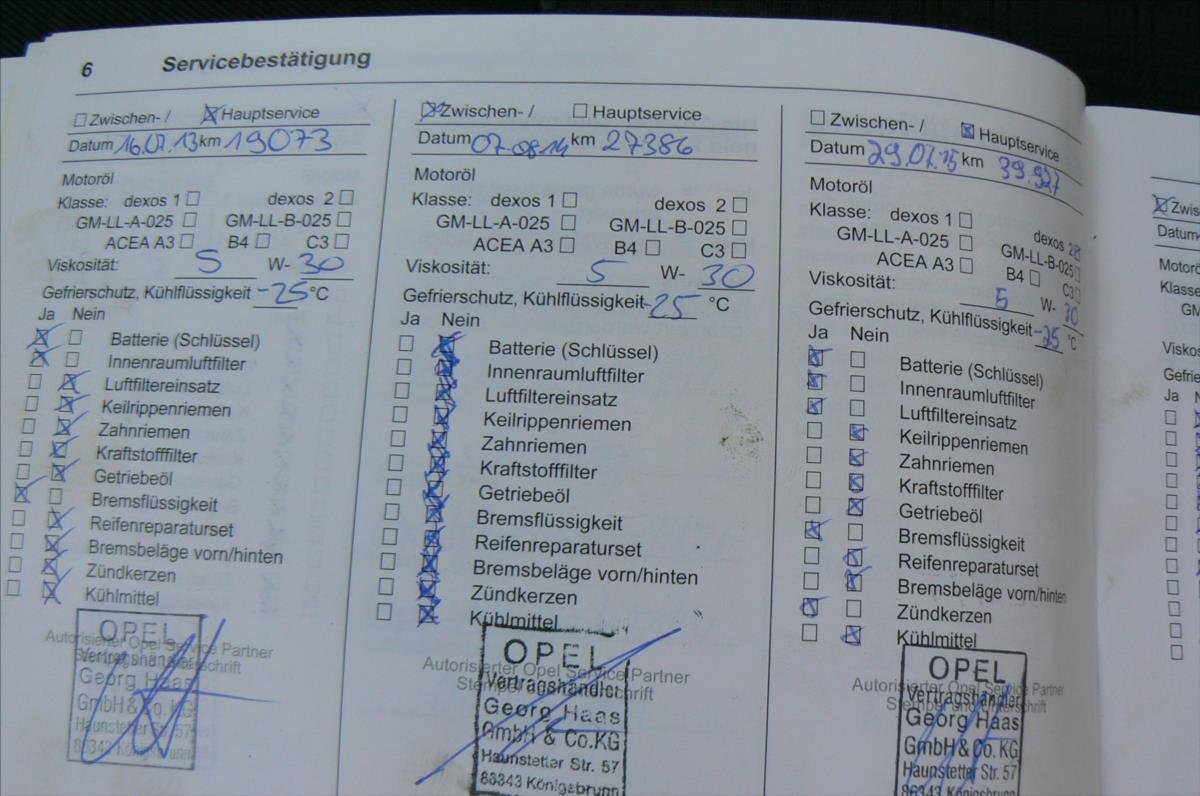 6 Servicebestätigung
☐ Zwischen- / ☒ Hauptservice
Datum 16.07.13 km 19073
Motoröl
Klasse: dexos 1 ☐ dexos 2 ☐
GM-LL-A-025 ☐ GM-LL-B-025 ☐
ACEA A3 ☐ B4 ☐ C3 ☐
Viskosität: 5 W- 30
Gefrierschutz, Kühlflüssigkeit -25 °C
Ja Nein
☒ ☐ Batterie (Schlüssel)
☒ ☐ Innenraumluftfilter
☐ ☒ Luftfiltereinsatz
☐ ☒ Keilrippenriemen
☐ ☒ Zahnriemen
☐ ☒ Kraftstofffilter
☐ ☒ Getriebeöl
☒ ☐ Bremsflüssigkeit
☐ ☒ Reifenreparaturset
☐ ☒ Bremsbeläge vorn/hinten
☐ ☒ Zündkerzen
☐ ☒ Kühlmittel
Autorisierter Opel Service Partner
Stempel und Unterschrift
OPEL
Vertragshändler
Georg Haas
GmbH & Co. KG
Haunstetter Str. 57
86343 Königsbrunn
☒ Zwischen- / ☐ Hauptservice
Datum 07.08.14 km 27386
Motoröl
Klasse: dexos 1 ☐ dexos 2 ☐
GM-LL-A-025 ☐ GM-LL-B-025 ☐
ACEA A3 ☐ B4 ☐ C3 ☐
Viskosität: 5 W- 30
Gefrierschutz, Kühlflüssigkeit -25 °C
Ja Nein
☐ ☒ Batterie (Schlüssel)
☐ ☒ Innenraumluftfilter
☐ ☒ Luftfiltereinsatz
☐ ☒ Keilrippenriemen
☐ ☒ Zahnriemen
☐ ☒ Kraftstofffilter
☐ ☒ Getriebeöl
☐ ☒ Bremsflüssigkeit
☐ ☒ Reifenreparaturset
☐ ☒ Bremsbeläge vorn/hinten
☐ ☒ Zündkerzen
☐ ☒ Kühlmittel
Autorisierter Opel Service Partner
Stempel und Unterschrift
OPEL
Vertragshändler
Georg Haas
GmbH & Co.KG
Haunstetter Str. 57
86343 Königsbrunn
☐ Zwischen- / ☒ Hauptservice
Datum 29.07.15 km 39.927
Motoröl
Klasse: dexos 1 ☐ dexos 2 ☒
GM-LL-A-025 ☐ GM-LL-B-025 ☐
ACEA A3 ☐ B4 ☐ C3 ☐
Viskosität: 5 W- 30
Gefrierschutz, Kühlflüssigkeit -25 °C
Ja Nein
☒ ☐ Batterie (Schlüssel)
☒ ☐ Innenraumluftfilter
☒ ☐ Luftfiltereinsatz
☐ ☒ Keilrippenriemen
☐ ☒ Zahnriemen
☐ ☒ Kraftstofffilter
☐ ☒ Getriebeöl
☒ ☐ Bremsflüssigkeit
☐ ☒ Reifenreparaturset
☐ ☒ Bremsbeläge vorn/hinten
☒ ☐ Zündkerzen
☐ ☒ Kühlmittel
Autorisierter Opel Service Partner
Stempel und Unterschrift
OPEL
Vertragshändler
Georg Haas
GmbH & Co. KG
Haunstetter Str. 57
86343 Königsbrunn
☒ Zwis
Datum
Motorö
Klasse
GM
Visko
Gefrie
Ja N